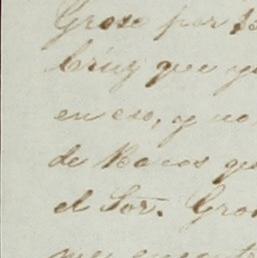 Grose por
Cruz que
en eso, y no
de Bacos
el Sor. Gros